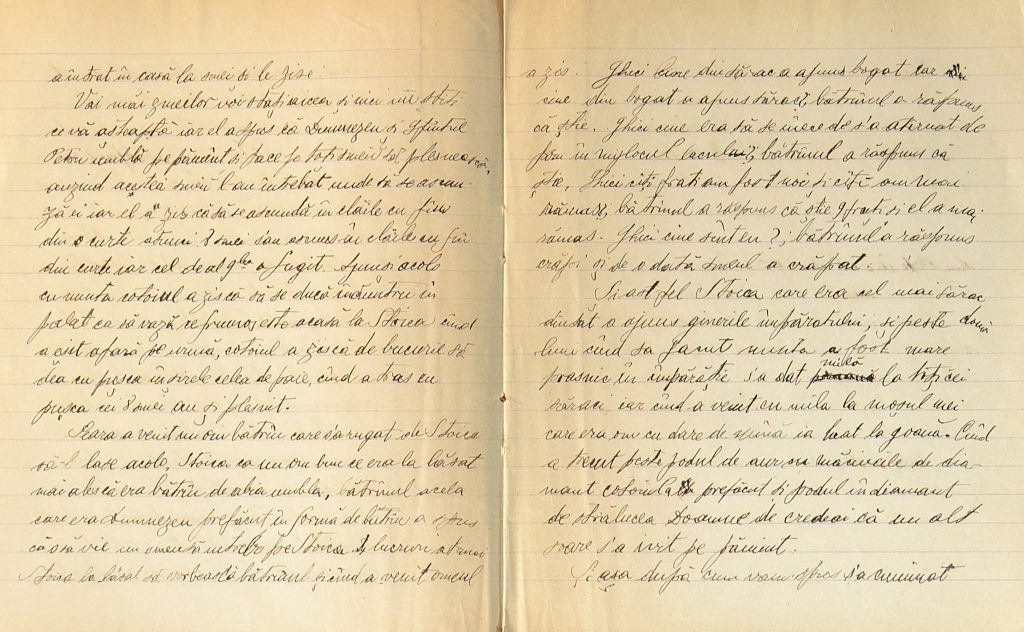 a intrat în casă la smei si le zise:
Vai măi zmeilor voi stați aicea și nici nu știți
ce vă asteaptă iar el a spus că Dumnezeu și Sfîntul
Petru umblă pe pămînt și face pe toți smeii să plesnească,
auzind aceștia smeii l-au întrebat unde să se ascun-
ză ei iar el a zis că să se ascundă în clăile cu fîn
din curte atunci 8 smei s'au ascuns în clăile cu fîn
din curte iar cel de al 9lea a fugit. Ajunsi acolo
cu nunta cotoiul a zis că să se ducă înăuntru în
palat ca să vază ce frumos este acasă la Stoica cînd
a esit afară pe urmă, cotoiul a zis că de bucurie să
dea cu pușca în sirele celea de paie, cînd a tras cu
pușca cei 8 smei au și plesnit.
Seara a venit un om bătrîn care s'a rugat de Stoica
să-l lase acolo, Stoica ca un om bun ce era la lăsat
mai ales că era bătrîn de abia umbla, bătrînul acela
care era Dumnezeu prefăcut în formă de bătrîn a spus
că o să vie un smeu să întrebe pe Stoica lucruri, atunci
Stoica la lăsat să vorbească bătrînul și cînd a venit smeul
a zis. Ghici cine din sărac a ajuns bogat iar
cine din bogat a ajuns sărac?, bătrînul a răspuns
că știe. Ghici cine era să se înece de s'a atîrnat de
pom în mijlocul lacului?; bătrînul a răspuns că
știe, Ghici cîți frați am fost noi și cîți am mai
rămas?, bătrînul a răspuns că știe 9 frați și el a ma.
rămas. Ghici cine sînt eu?; bătrînul a răspuns
crăpi și de o dată smeul a crăpat.
Si ast fel Stoica care era cel mai sărac
din sat a ajuns ginerile împăratului, și peste două
luni cînd sa făcut nunta a fost mare
prasnic în împărăție s'a dat milă la toți cei
săraci iar cînd a venit cu mila la moșul mei
care era om cu dare de mînă ia luat la goană. Cînd
a trecut peste podul de aur cu măciucile de dia-
mant cotoiul a prefăcut și podul în diamant
de strălucea Doamne de credeai că un alt
soare s'a ivit pe pămînt.
Și așa după cum vam spus s'a cununat